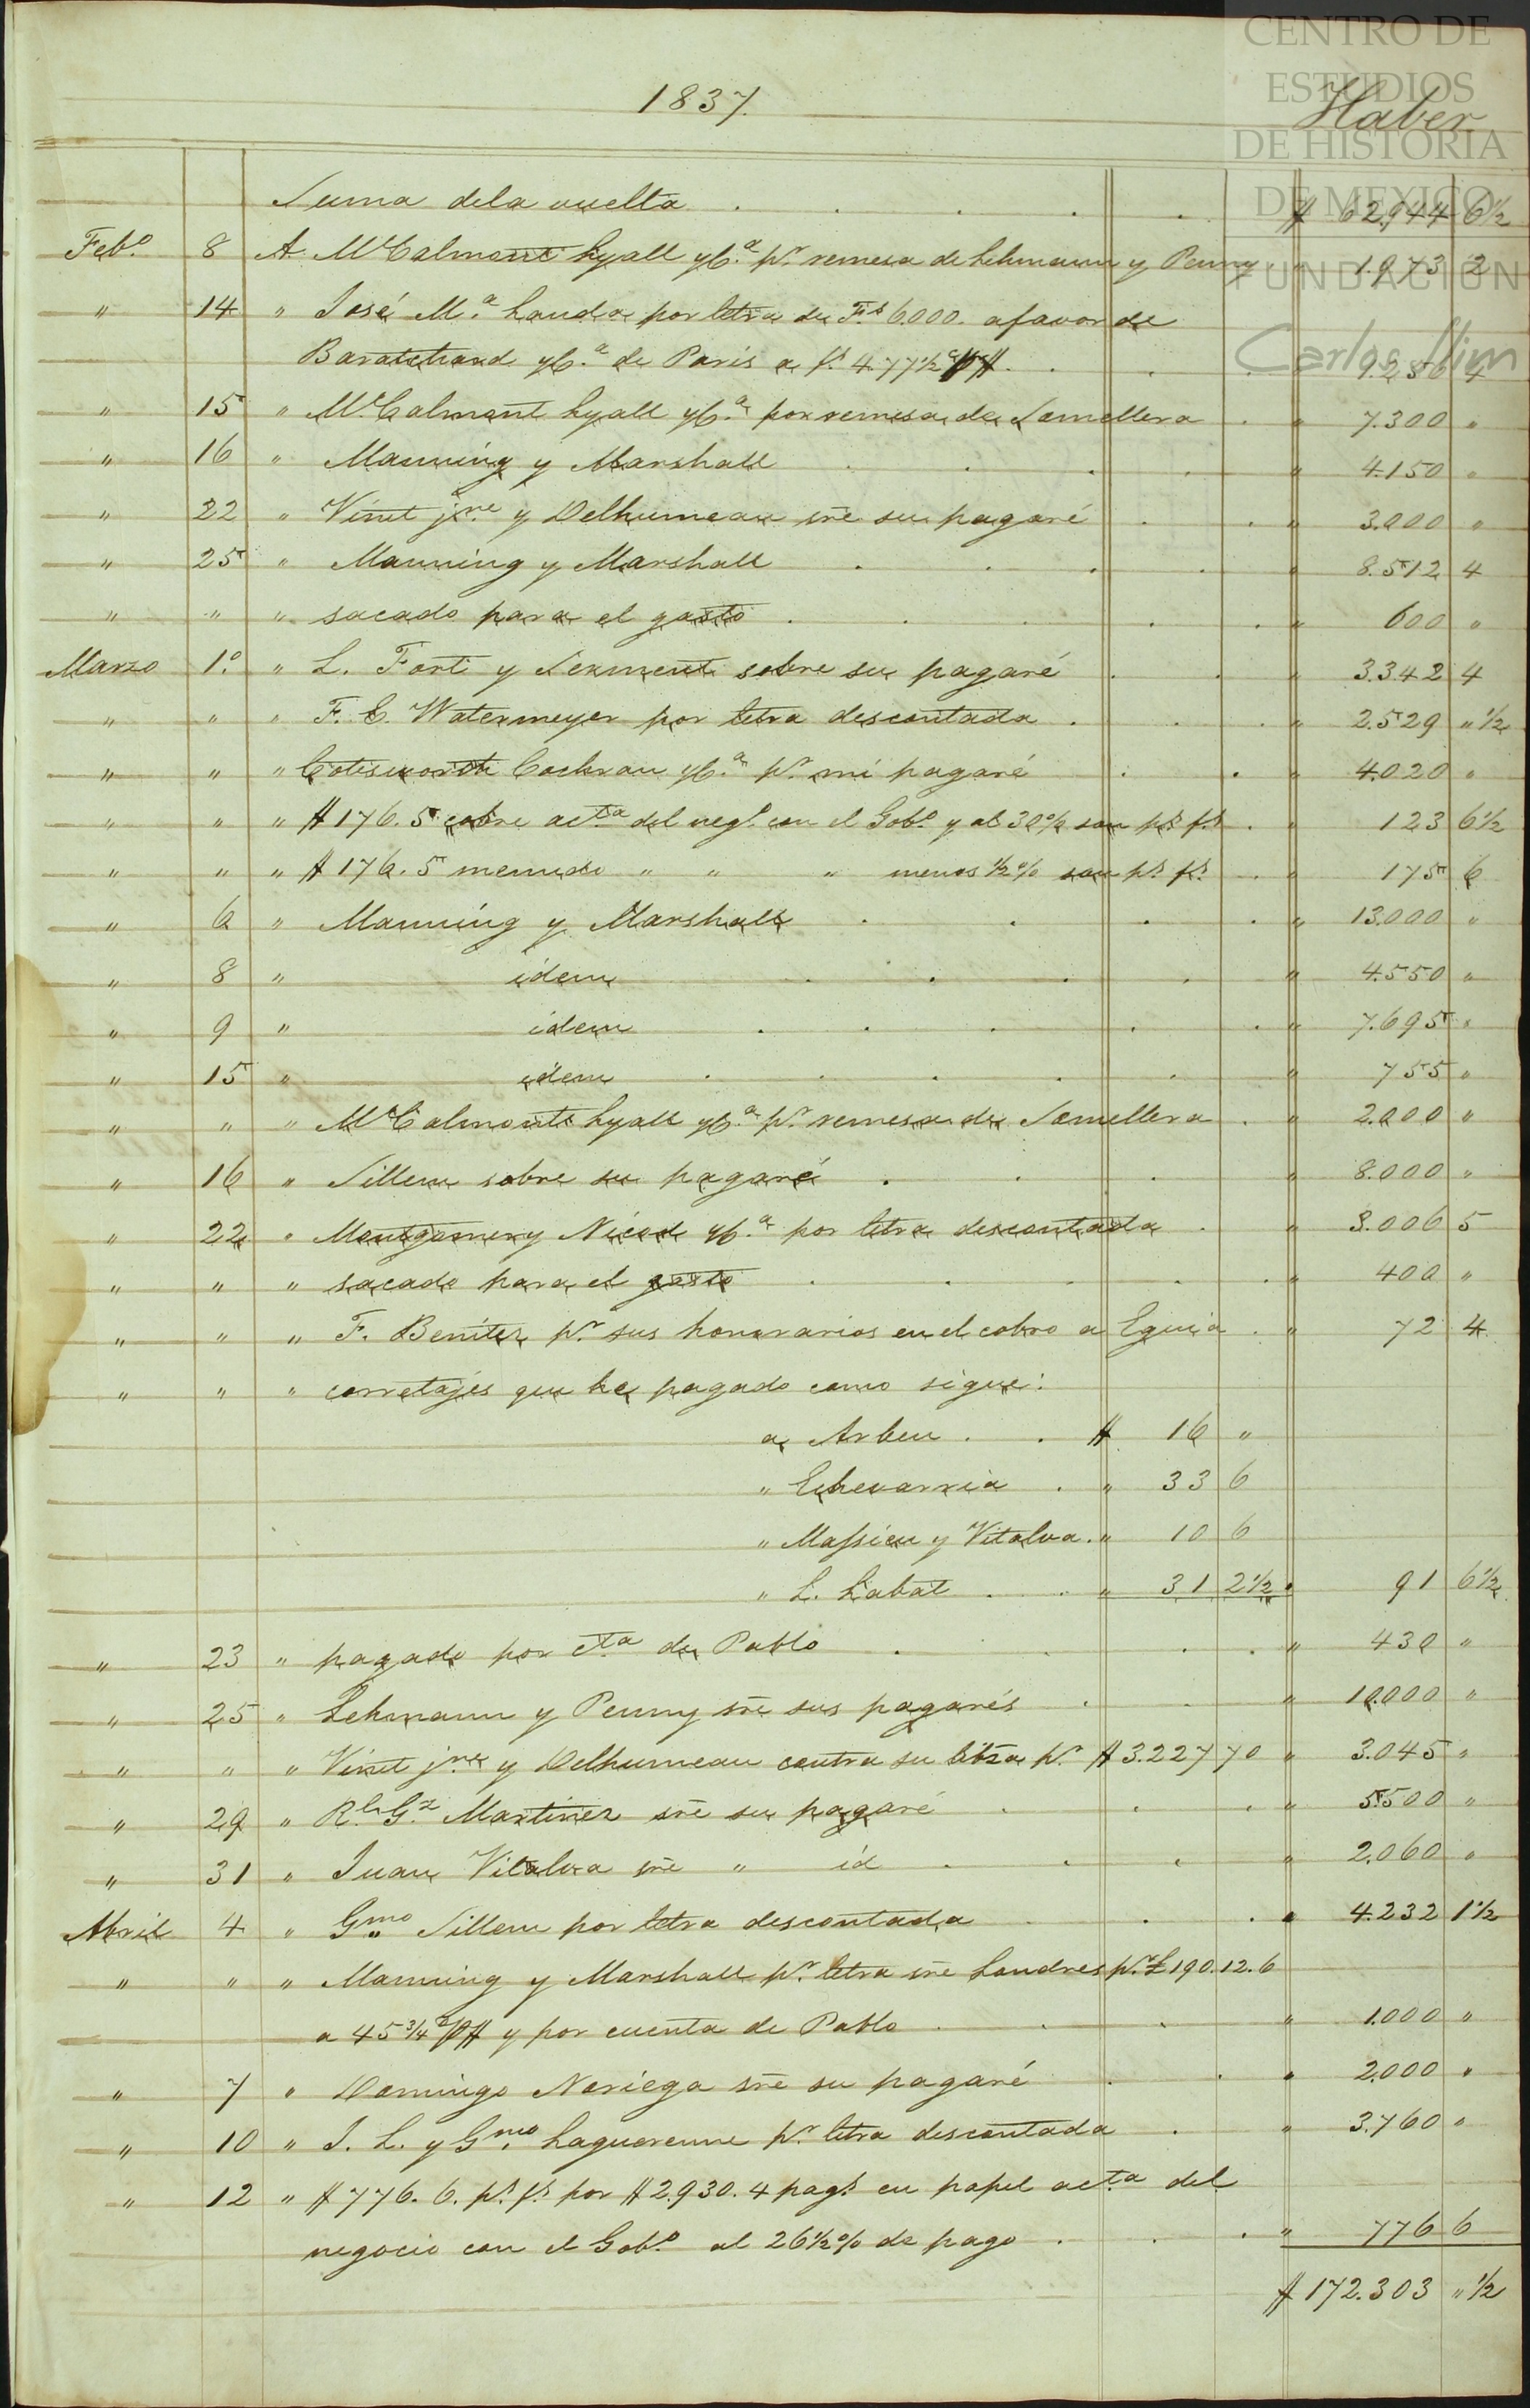 CENTRO DE
ESTUDIOS
DE HISTORIA
DE MEXICO
FUNDACION
Carlos Slim
1837.
Haber
Suma dela vuelta . . . . . $ 62,944 6½
Feb.o 8 A McCalmont Lyall yC.a p.r remesa de Lehmann y Penny " 1.973 2
" 14 " José M.a Landa por letra de F.s 6.000. a favor de
yC.a de Paris a f.s 4.77½ . . . 9.256 4
" 15 " McCalmont Lyall yC.a por remesa de Lamellera . " 7.300 "
" 16 " Manning y Marshall . . . . " 4.150 "
" 22 " Vinet j.ne y Delhumeau sre su pagaré . . " 3.000 "
" 25 " Manning y Marshall . . . . " 8.512 4
" " " sacado para el gasto . . . . . " 600 "
Marzo 1.o " L. Forti y Serment sobre su pagaré . . " 3.342 4
" " " F. C. Watermeyer por letra descontada . . . " 2.529 " ½
" " " Cotesworth Cochran yC.a p.r mi pagaré . . " 4.020 "
" " " $ 176. 5 cobre acta del neg.o con el Gob.o y al 30% son p.s f.s . " 123 6½
" " " $ 176. 5 menudo " " " menos ½% son p.s f.s . " 175 6
" 6 " Manning y Marshall . . . . " 13.000 "
" 8 " idem . . . . " 4.550 "
" 9 " idem . . . . . " 7.695 "
" 15 " idem . . . . . " 755 "
" " " McCalmont Lyall yC.a p.r remesa de Lamellera . " 2.000 "
" 16 " Sillem sobre su pagaré . . . " 8.000 "
" 22 " Montgomery Nicod yC.a por letra descontada . " 3.006 5
" " " sacado para el gasto . . . . . " 400 "
" " " F. Benitez p.r sus honorarios en el cobro a Eguia . " 72 4
" " " corretajes que he pagado como sigue:
a Arbeu . . $ 16 "
" Echevarria . " 33 6
" Massieu y Vitalva . " 10 6
" L. Labat . . " 31 2½ " 91 6½
" 23 " pagado por cta de Pablo . . . . " 430 "
" 25 " Lehmann y Penny sre sus pagarés . . " 10.000 "
" " " Vinet j.ne y Delhumeau contra su libza p.r $ 3.227 70 " 3.045 "
" 29 " R.l G.z Martinez sre su pagaré . . . " 5.500 "
" 31 " Juan Vitalva sre " id . . . " 2.060 "
Abril 4 " G.mo Sillem por letra descontada . . . " 4.232 1½
" " " Manning y Marshall p.r letra sre Londres p.r £ 190.12.6
a 45¾ y por cuenta de Pablo . . . " 1.000 "
" 7 " Domingo Noriega sre su pagaré . . " 2.000 "
" 10 " J. L. y G.mo Laguerenne p.r letra descontada . " 3.760 "
" 12 " $ 776. 6. p.s f.s por $ 2.930. 4 pag.s en papel acta del
negocio con el Gob.o al 26½% de pago . . . " 776 6
$ 172.303 " ½